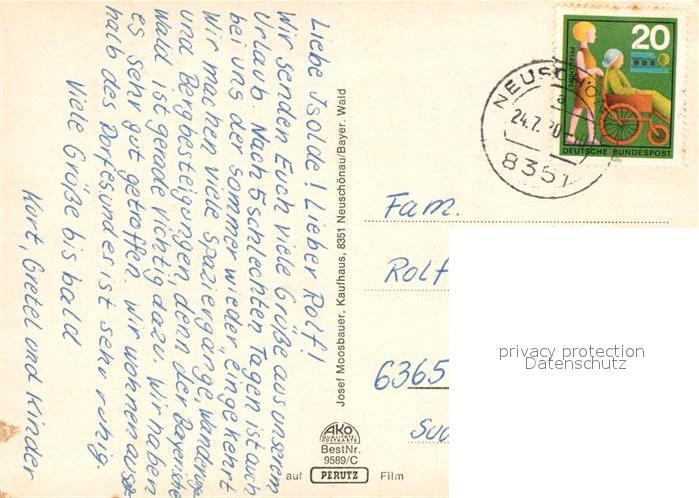 Liebe Isolde! Lieber Rolf!
Wir senden Euch viele Grüße aus unserem
Urlaub. Nach 5 schlechten Tagen ist auch
bei uns der Sommer wieder eingekehrt
Wir machen viele Spaziergänge, Wanderunge
und Bergbesteigungen, denn der Bayerische
Wald ist gerade richtig dazu. Wir haben
es sehr gut getroffen. Wir wohnen ausser
halb des Dorfes und es ist sehr ruhig.
Viele Grüße bis bald
Kurt, Gretel und Kinder
Josef Moosbauer, Kaufhaus, 8351 Neuschönau/Bayer. Wald
AKO
QUALITÄTS
POSTKARTE
BestNr.
9589/C
auf PERUTZ Film
20
DEUTSCHE BUNDESPOST
NEUSCHÖN
a
24.7.70
8351
Fam.
Rolf
6365
privacy protection
Datenschutz